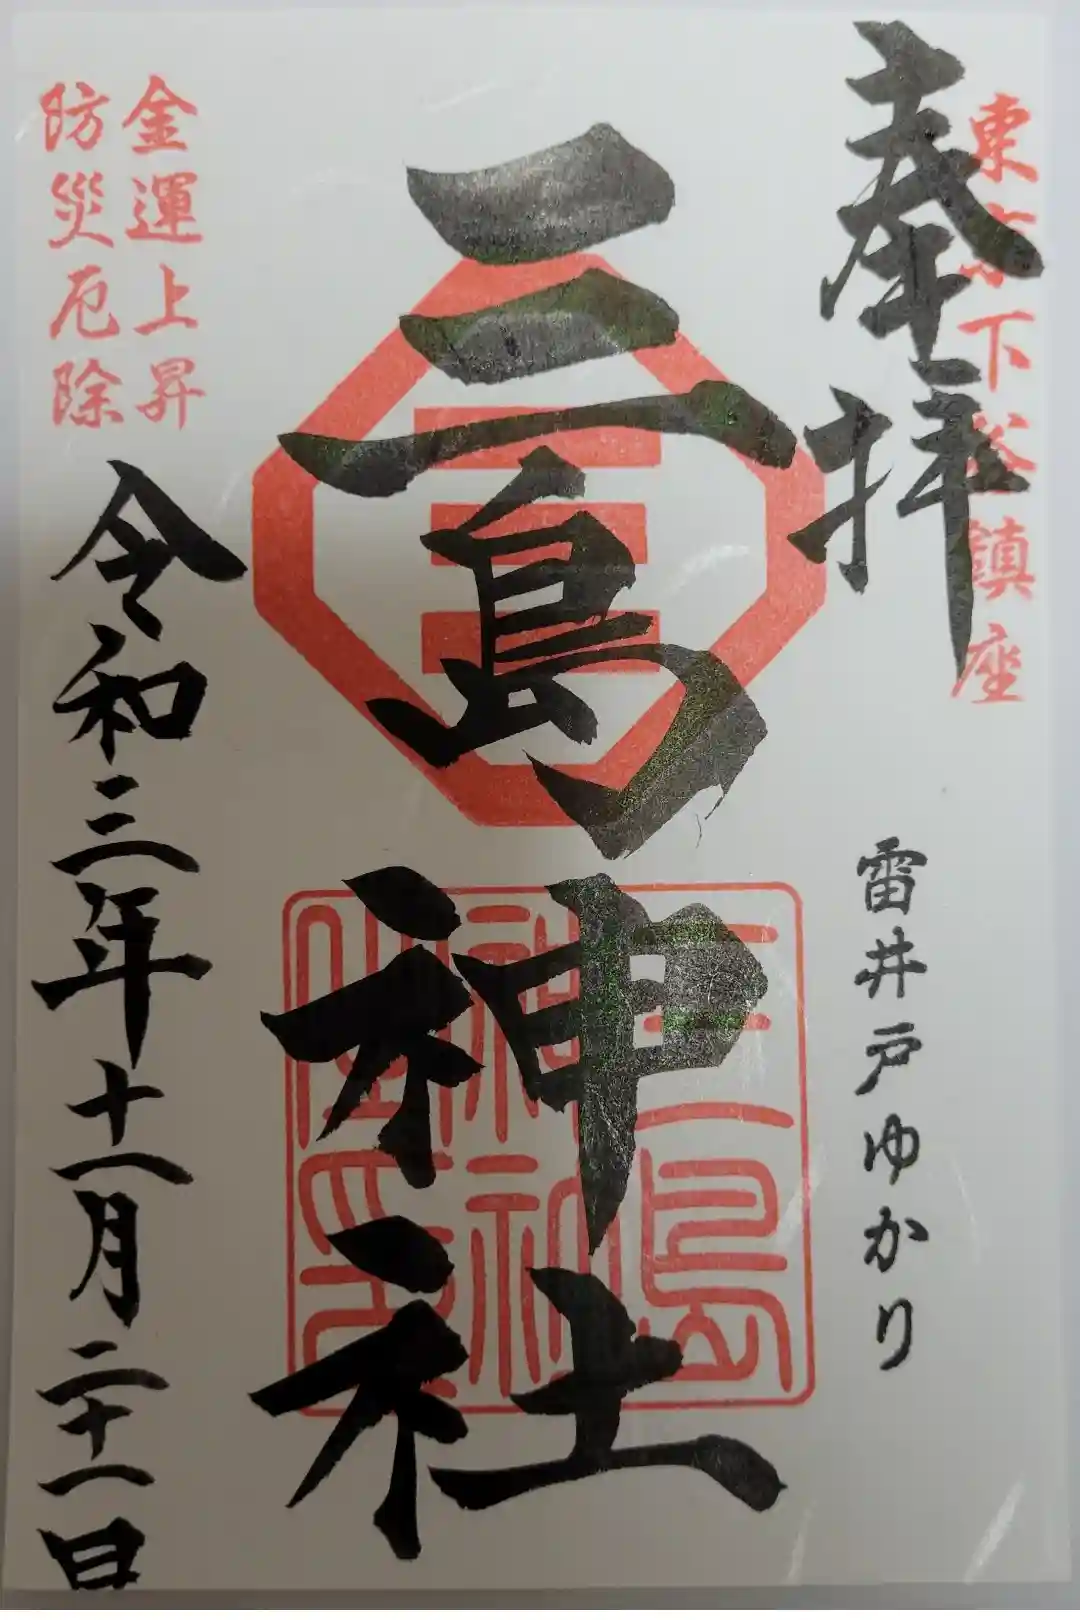 奉拝
東京下谷鎮座
雷井戸ゆかり
三島神社
三島神社之印
金運上昇
防災厄除
令和三年十一月二十一日